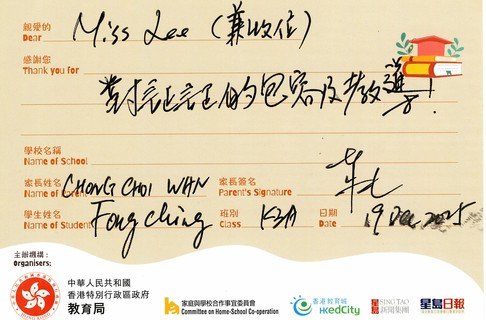 親愛的
Dear Miss Lee (兼收位)
感謝您
Thank you for
對 的包容及教導!
學校名稱
Name of School
家長姓名 家長簽名
Name of Parent CHONG CHOI WAN Parent's Signature
學生姓名 班別 日期
Name of Student Fong Ching Class K3A Date 19 Dec 2025
主辦機構:
Organisers:
中華人民共和國
香港特別行政區政府
教育局
家庭與學校合作事宜委員會
Committee on Home-School Co-operation
香港教育城
HKedCity
星島 SING TAO
新聞集團
星島日報